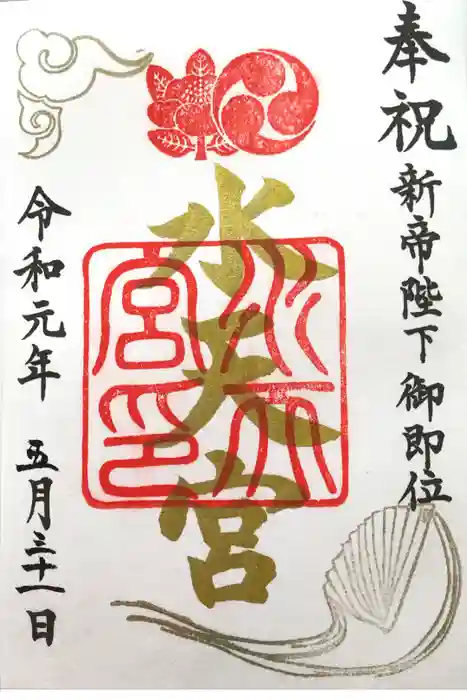 奉祝
新帝陛下御即位
水天宮
水天宮印
令和元年
五月三十一日